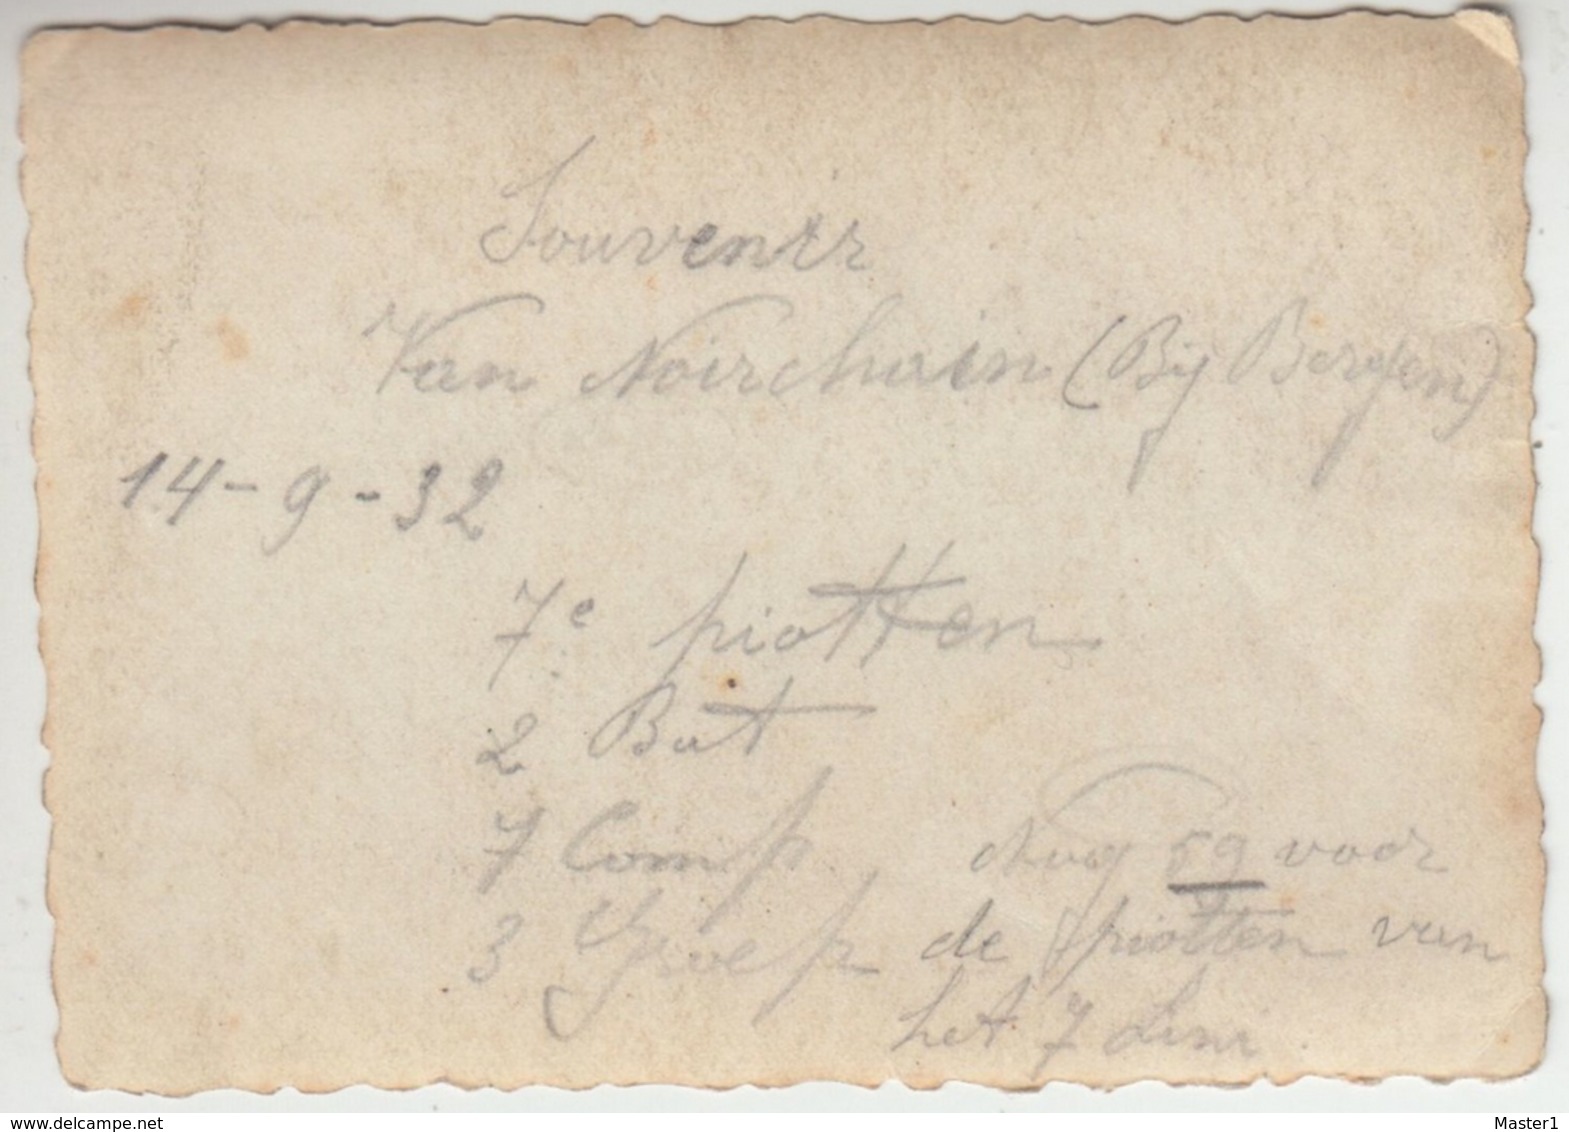 Souvenir
Van Noirchain (Bij Bergen)
14-9-32
7e piotten
2 Bat
7 Comp
3 Groep
Nog 59 voor
de piotten van
het 7 Lini
www.delcampe.net
Master1